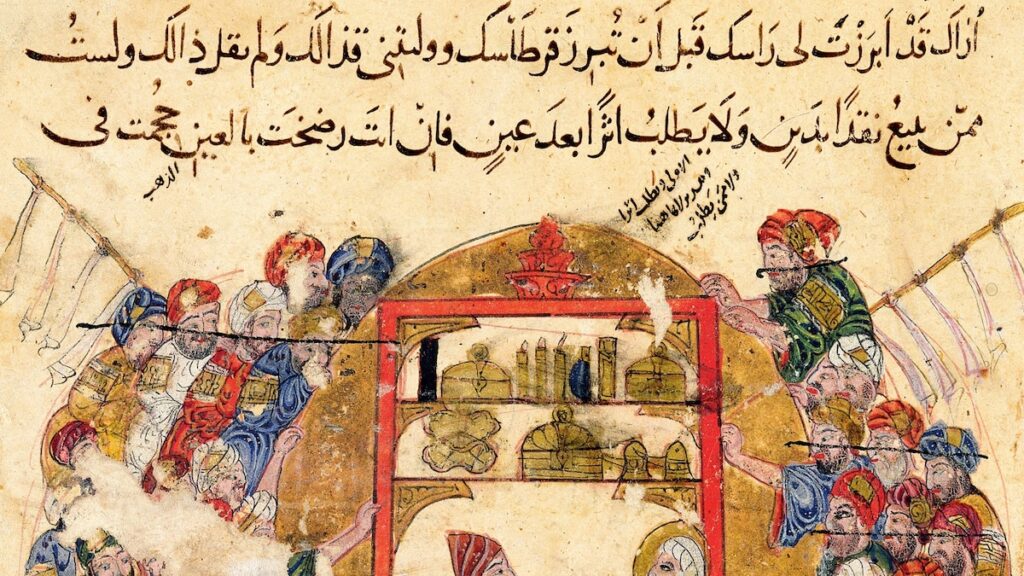 اراك قَدْ اَبرَزتَ لى رَاسَك قَبلَ اَن تُبرِزَ قرطَاسَك وولَيتَنى قذالَك وَلم تقل ذا لَك ولَست
ممّن يبيعُ نقدًا بدَينٍ وَلَا يَطلبُ اثرًا بعدَ عينٍ فَانّ انتَ رضختَ بالعين حجمت فى
الذهب